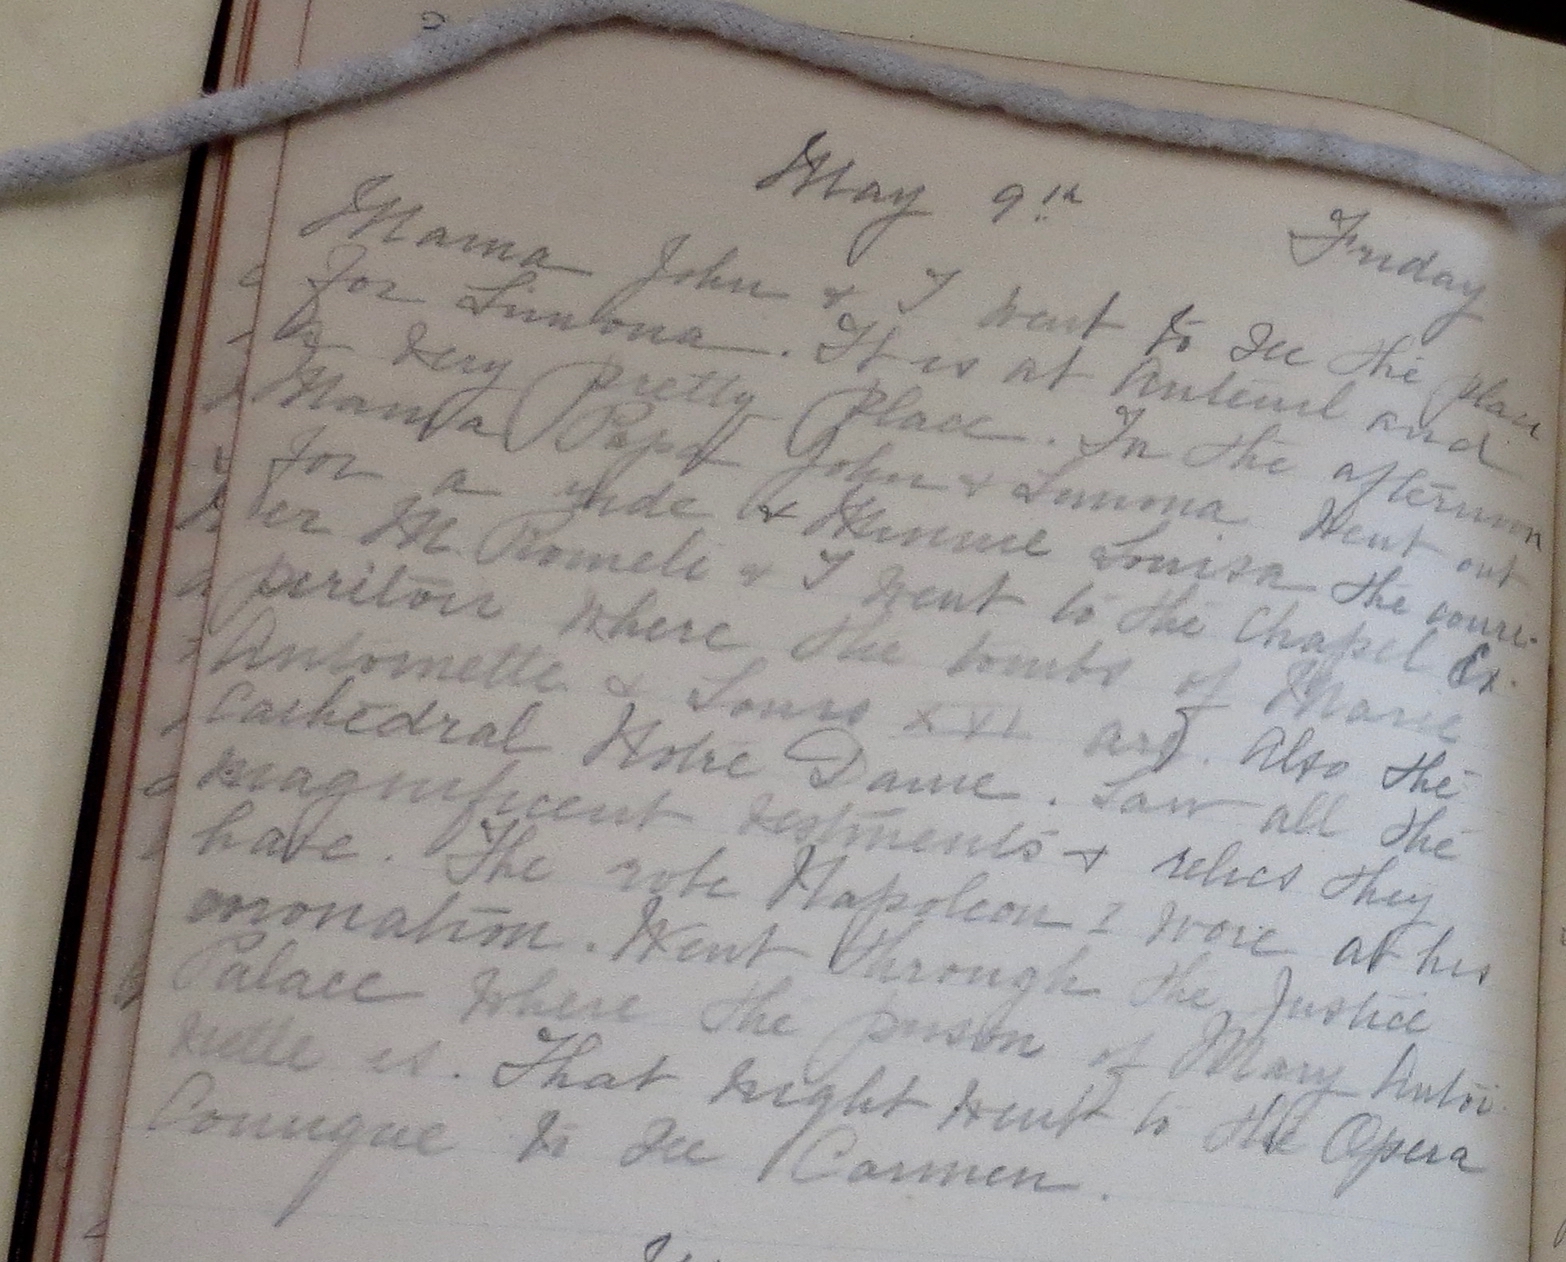 May 9th Friday
Mama John & I went to see the place
for Simona. It is at Auteuil and
a very pretty place. In the afternoon
Mama Papa John & Simona went out
for a ride & Minnie Louisa the couri-
er M. Romeli & I went to the Chapel Ex-
peritoir where the tombs of Marie
Antoinette & Louis XVI are. Also the
Cathedral Notre Dame. Saw all the
magnificent vestments & relics they
have. The robe Napoleon I wore at his
coronation. Went through the Justice
Palace where the prison of Mary Antoi-
nette is. That night went to the Opera
Comique to see Carmen.